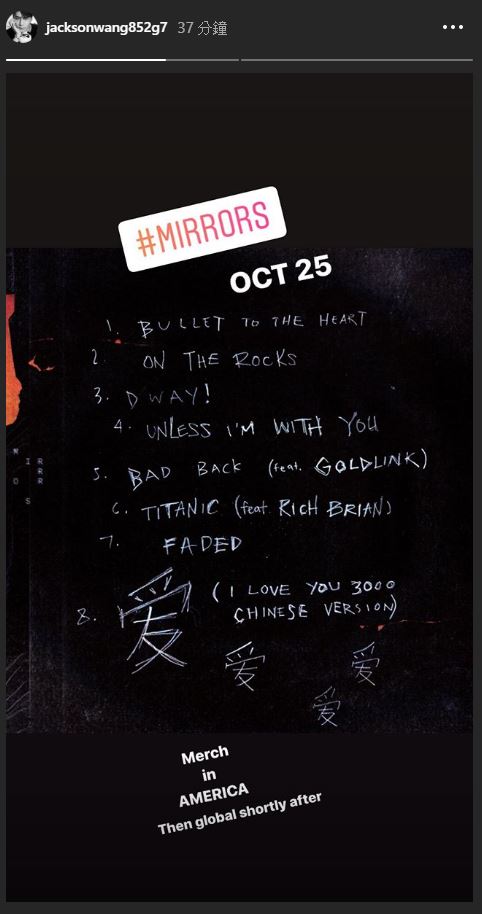 jacksonwang852g7 37 分鐘
#MIRRORS
OCT 25
1. BULLET TO THE HEART
2. ON THE ROCKS
3. DWAY!
4. UNLESS I'M WITH YOU
5. BAD BACK (feat. GOLDLINK)
6. TITANIC (feat RICH BRIAN)
7. FADED
8. 爱 (I LOVE YOU 3000
CHINESE VERSION)
爱 爱
爱
Merch
in
AMERICA
Then global shortly after